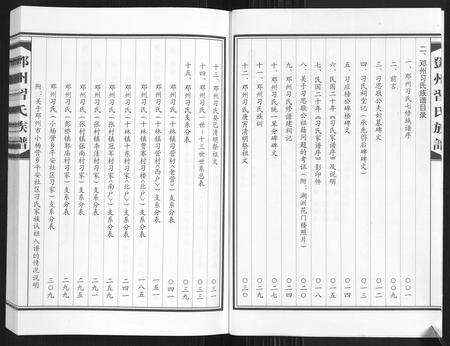 邓州習氏族譜
二、邓州习氏族谱目录
一、邓州习氏七修族谱序 〇〇一
二、前言 〇〇九
三、习思敬公夫妇墓碑文 〇一一
四、习氏祠堂记（永先啓后碑碑文） 〇一二
五、习应禄公碑碑文 〇一五
六、民国二十年《习氏家谱序》及说明
七、民国二十年《习氏家谱序》影印件 〇一八
八、关于习思敬公姓籍问题的考证（附：湖洲花门楼照片）
九、邓州习氏修谱建祠记
十、邓州习氏统一辈分碑碑文
十一、邓州习氏族训 〇二九
十二、邓州习氏庚寅清明祭祖文 〇三〇
十三、邓州习氏癸巳清明祭祖文 〇三一
十四、邓州习氏一世-十三世世系总表 〇三三
十五、邓州习氏支系分表 〇三九
邓州习氏（十林镇习营村《老营》）支系分表 〇四一
邓州习氏（十林镇习营村《西户》）支系分表
邓州习氏（十林镇贾寨村习楼《北户》）支系分表 一八五
邓州习氏（张村镇冠军村习家《南户》）支系分表 二四一
邓州习氏（张村镇李洼村习家）支系分表 二九一
邓州习氏（张村镇张南村习家）支系分表 二九五
邓州习氏（彭桥镇郭岳村习家）支系分表 二九九
邓州习氏（小杨营乡平安社区习家）支系分表
附：关于邓州市小杨营乡平安社区习氏家族认祖入谱的情况说明 三〇九
邓州習氏族譜